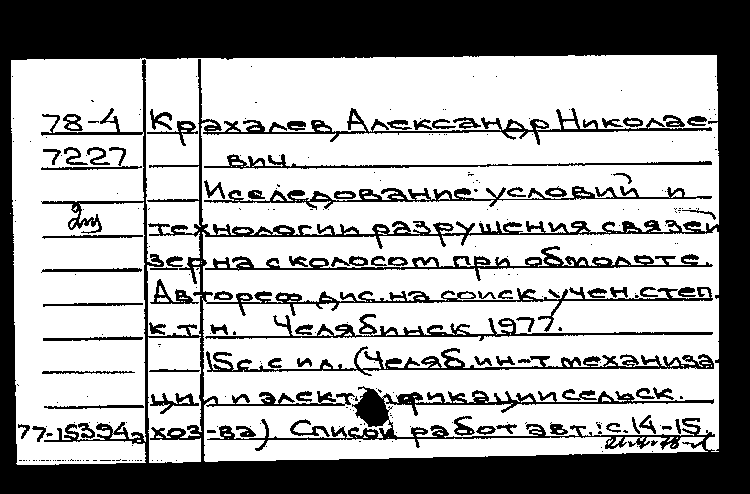 78-4 Крахалев, Александр Николае-
7227 вич.
Исследование условий и
2яз технологии разрушения связей
зерна с колосом при обмолоте.
Автореф. дис. на соиск. учен. степ.
к.т.н. Челябинск, 1977.
15с. с ил. (Челяб. ин-т механиза-
ции и электрификации сельск.
77-15394а хоз-ва). Список работ авт.: с. 14-15.